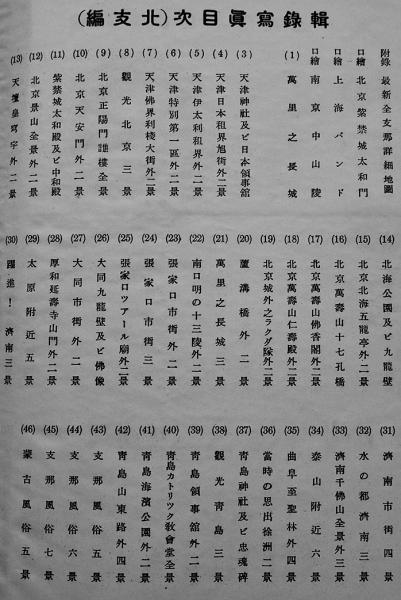 輯錄寫眞目次(北支編)
附錄 最新全支那詳細地圖
口繪 北京紫禁城太和門
口繪 上海バンド
口繪 南京中山陵
(1) 萬里之長城
(3) 天津神社及ビ日本領事館
(4) 天津日本租界旭街外二景
(5) 天津伊太利租界外二景
(6) 天津特別第一區外二景
(7) 天津佛界利棧大街外二景
(8) 觀光北京三景
(9) 北京正陽門譙樓全景
(10) 北京天安門外二景
(11) 紫禁城太和殿及ビ中和殿
(12) 北京景山全景外二景
(13) 天壇皇穹宇外二景
(14) 北海公園及ビ九龍壁
(15) 北京北海五龍亭外二景
(16) 北京萬壽山十七孔橋
(17) 北京萬壽山佛香閣外二景
(18) 北京萬壽山仁壽殿外二景
(19) 北京城外之ラクダ隊外二景
(20) 蘆溝橋外二景
(21) 萬里之長城三景
(22) 南口明の十三陵外二景
(23) 張家口市街外二景
(24) 張家口市街三景
(25) 張家口ツアール廟外二景
(26) 大同九龍壁及ビ佛像
(27) 大同市街外二景
(28) 厚和延壽寺山門外二景
(29) 太原附近五景
(30) 躍進!濟南三景
(31) 濟南市街四景
(32) 水の都濟南三景
(33) 濟南千佛山全景外三景
(34) 泰山附近六景
(35) 曲阜至聖林外四景
(36) 當時の思出徐洲二景
(37) 靑島神社及ビ忠魂碑
(38) 觀光靑島三景
(39) 靑島領事館外二景
(40) 靑島カトリツク敎會堂全景
(41) 靑島海濱公園外二景
(42) 靑島山東路外四景
(43) 支那風俗五景
(44) 支那風俗六景
(45) 支那風俗七景
(46) 蒙古風俗五景